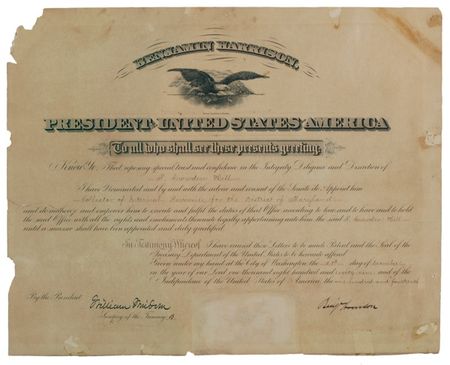 BENJAMIN HARRISON,
PRESIDENT OF THE UNITED STATES OF AMERICA
To all who shall see these presents greeting:
Know Ye, That reposing special trust and confidence in the Integrity Diligence and Discretion of
Hill
I have Nominated and by and with the advice and consent of the Senate do Appoint him
Collector of Internal Revenue for the District of Maryland
and do authorize and empower him to execute and fulfil the duties of that Office according to law and to have and to hold
the said Office with all the rights and emoluments thereunto legally appertaining unto him the said Hill
until a successor shall have been appointed and duly qualified
In Testimony Whereof, I have caused these Letters to be made Patent and the Seal of the
Treasury Department of the United States to be hereunto affixed
Given under my hand at the City of Washington the day of
in the year of our Lord one thousand eight hundred and and of the
Independence of the United States of America the one hundred and fourteenth
By the President
William Windom
Secretary of the Treasury
Benj Harrison